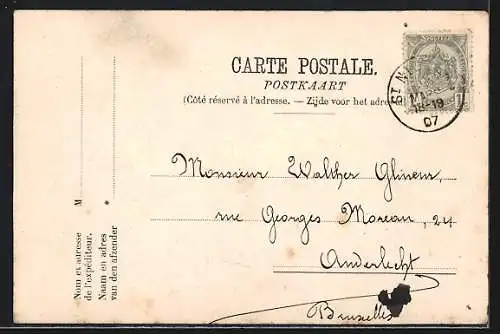 CARTE POSTALE.
POSTKAART
(Côté réservé à l'adresse. — Zijde voor het adres
ST N
18-19
07
1
Monsieur Walther Glineur,
rue Georges Moreau, 24
Anderlecht
Bruxelles
M
Nom et adresse
de l'expéditeur.
Naam en adres
van den afzender